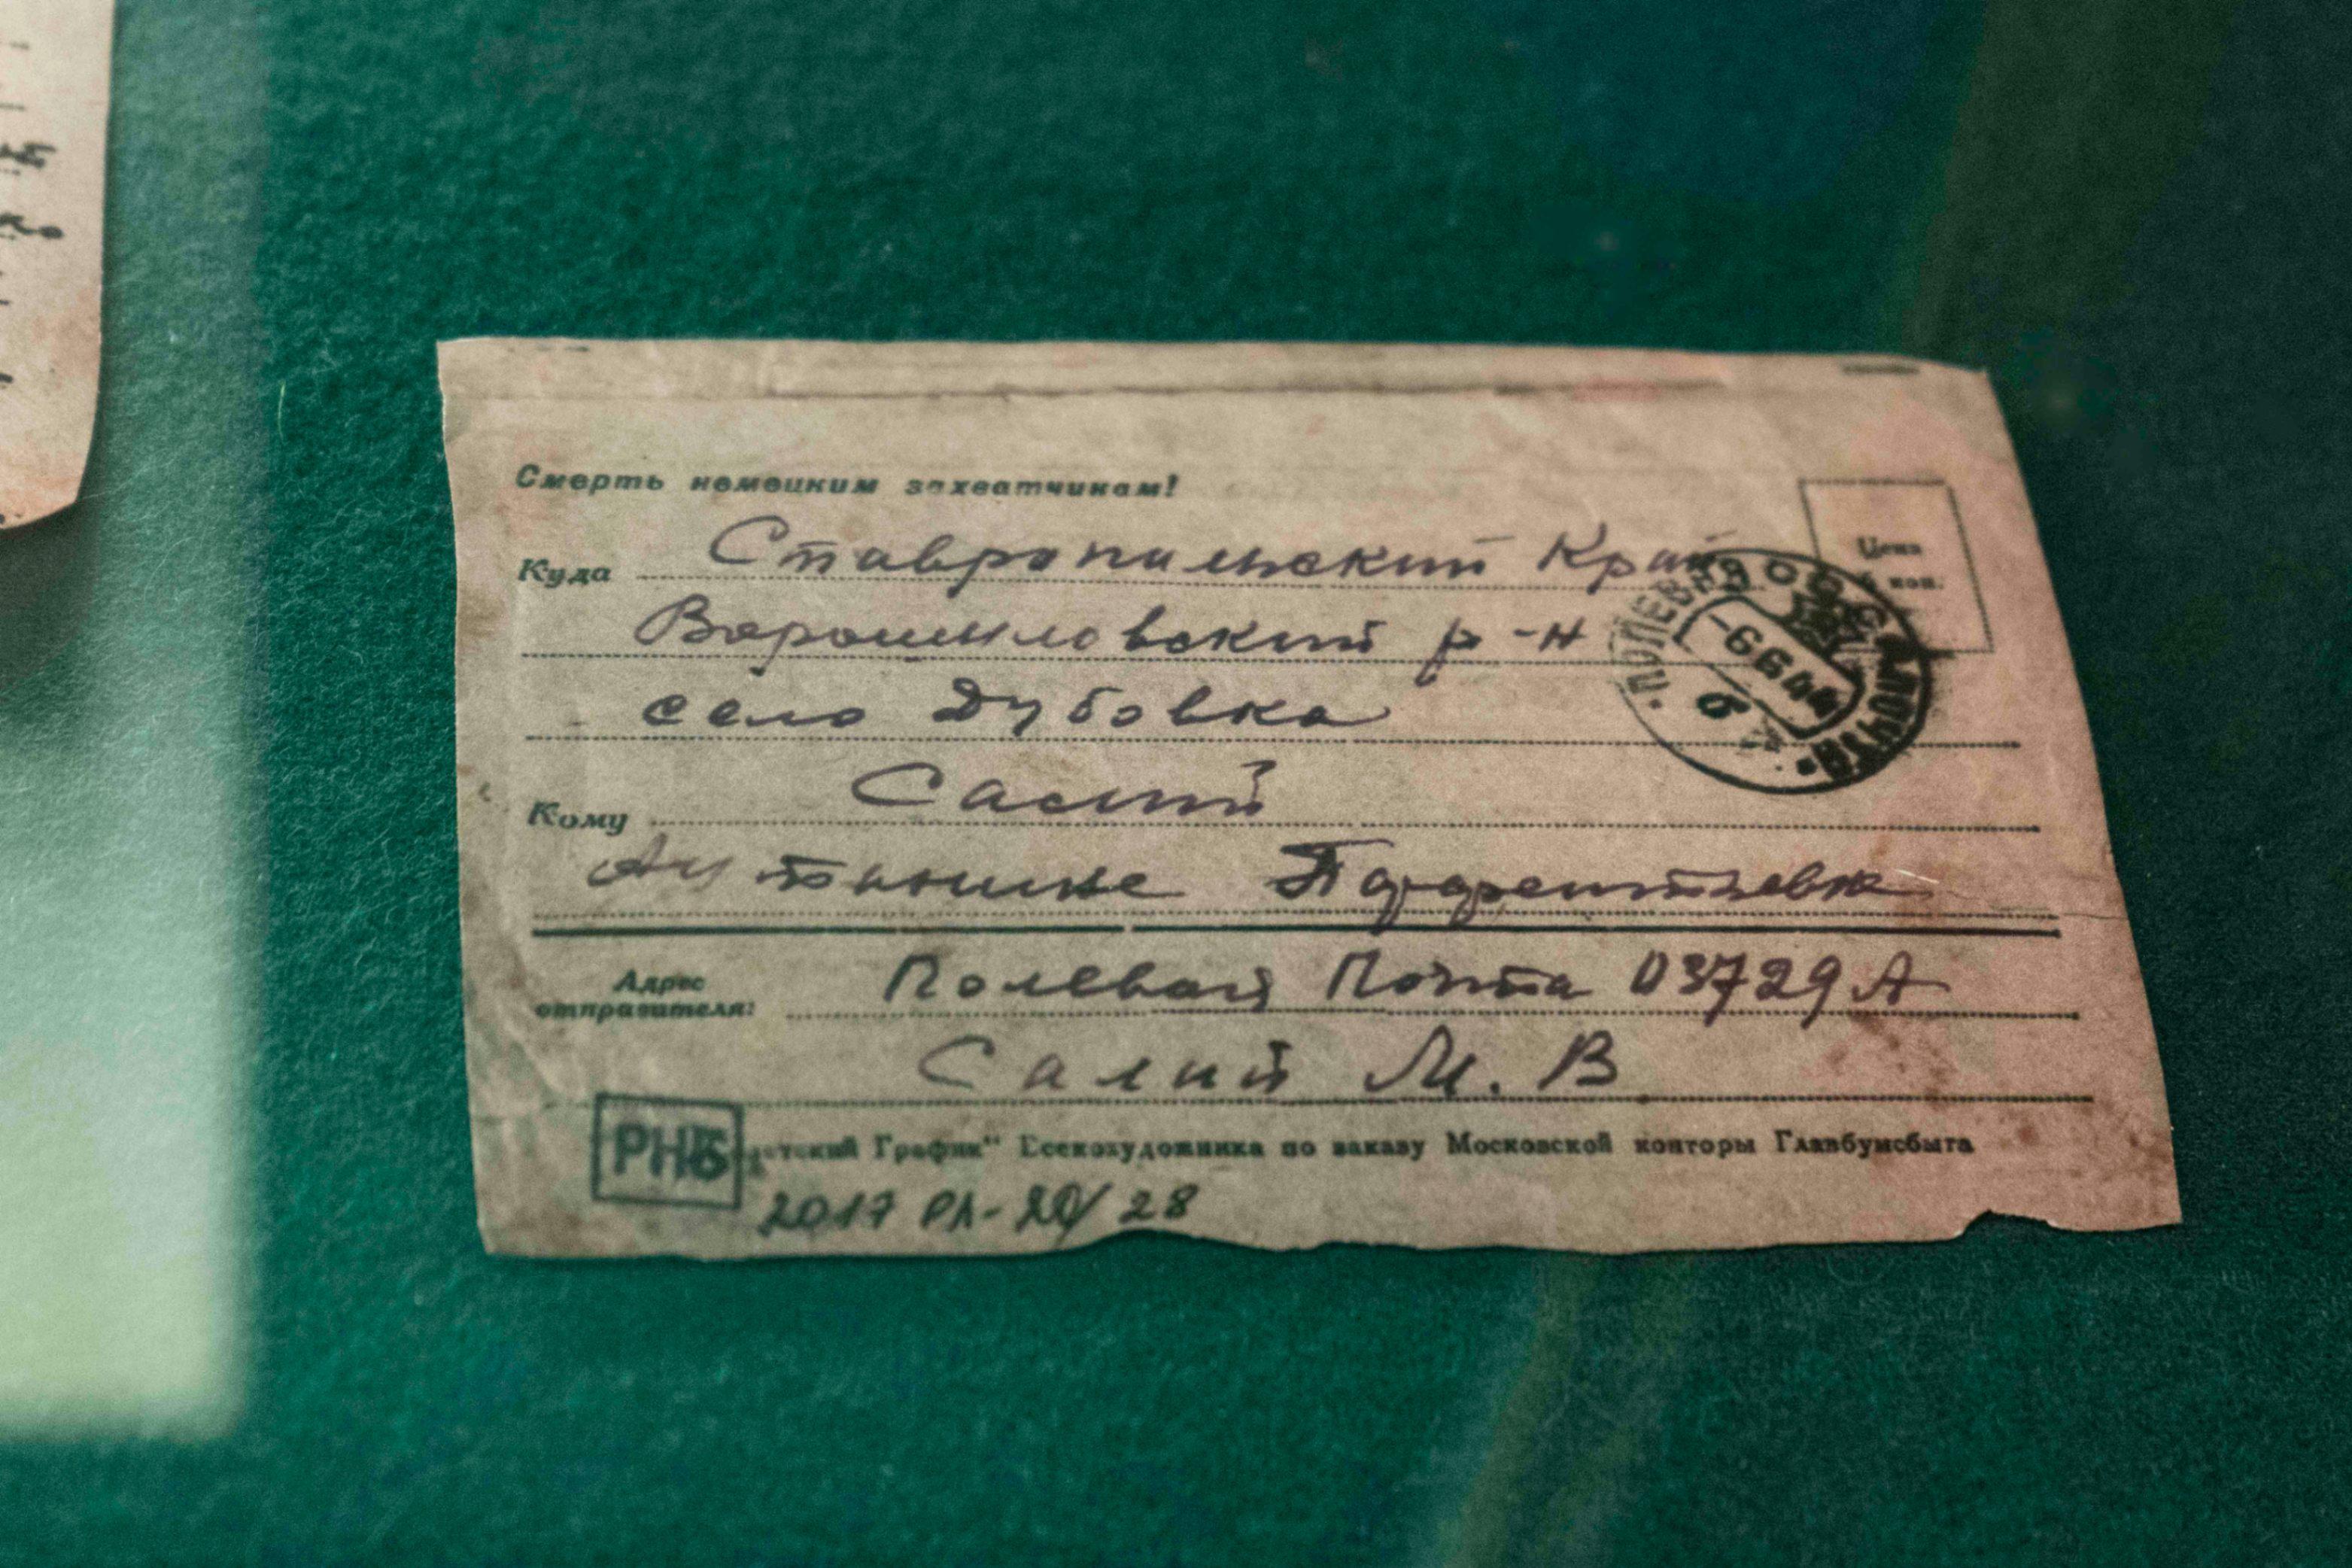 Смерть немецким захватчикам!
Цена
коп.
Куда Ставропольский Край
Ворошиловский р-н
село Дубовка
ПОЛЕВАЯ ПОЧТА
-6 6 44
б
Кому Салий
Парфентьевне
Адрес отправителя: Полевая Почта 03729 А
Салий М. В
РНБ График" Всекохудожника по заказу Московской конторы Главбумсбыта
2017 РЛ-20/28